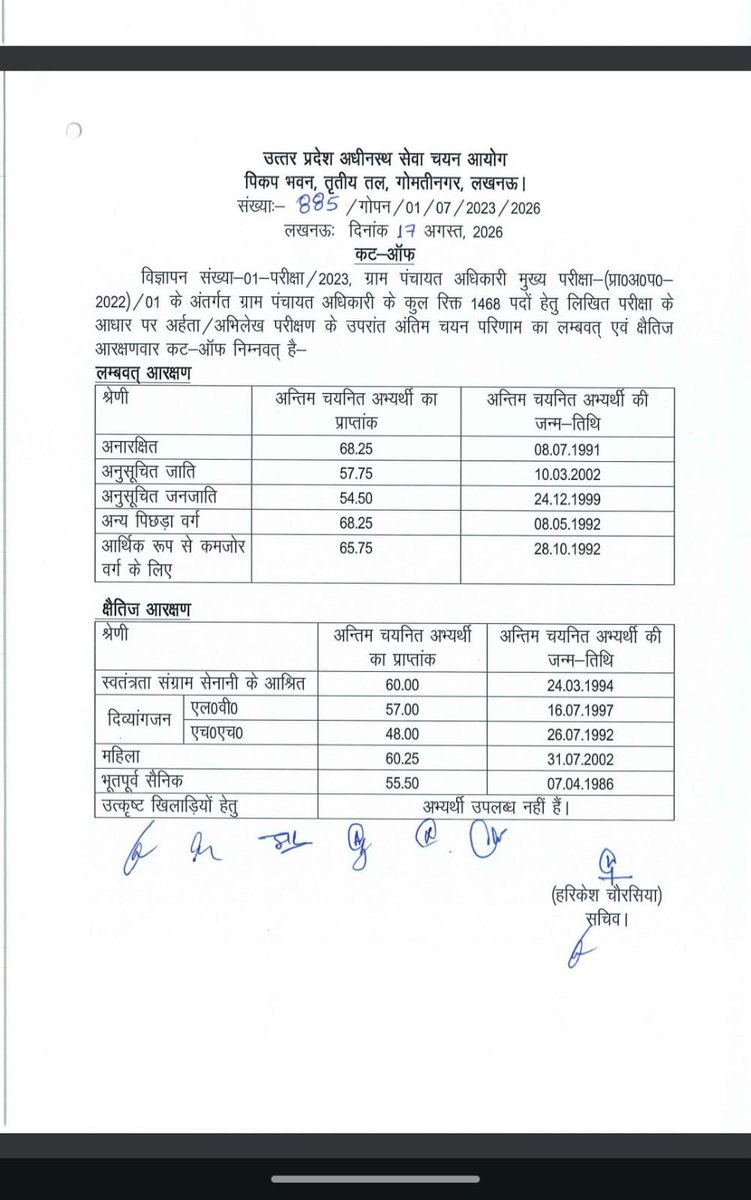 उत्तर प्रदेश अधीनस्थ सेवा चयन आयोग
पिकप भवन, तृतीय तल, गोमतीनगर, लखनऊ।
संख्याः– 885 /गोपन/01/07/2023/2026
लखनऊः दिनांक 17 अगस्त, 2026
कट–ऑफ
विज्ञापन संख्या–01–परीक्षा/2023, ग्राम पंचायत अधिकारी मुख्य परीक्षा–(प्रा0अ0प0–
2022)/01 के अंतर्गत ग्राम पंचायत अधिकारी के कुल रिक्त 1468 पदों हेतु लिखित परीक्षा के
आधार पर अर्हता/अभिलेख परीक्षण के उपरांत अंतिम चयन परिणाम का लम्बवत् एवं क्षैतिज
आरक्षणवार कट–ऑफ निम्नवत् है–
लम्बवत् आरक्षण
श्रेणी अन्तिम चयनित अभ्यर्थी का अन्तिम चयनित अभ्यर्थी की
प्राप्तांक जन्म–तिथि
अनारक्षित 68.25 08.07.1991
अनुसूचित जाति 57.75 10.03.2002
अनुसूचित जनजाति 54.50 24.12.1999
अन्य पिछड़ा वर्ग 68.25 08.05.1992
आर्थिक रूप से कमजोर 65.75 28.10.1992
वर्ग के लिए
क्षैतिज आरक्षण
श्रेणी अन्तिम चयनित अभ्यर्थी अन्तिम चयनित अभ्यर्थी की
का प्राप्तांक जन्म–तिथि
स्वतंत्रता संग्राम सेनानी के आश्रित 60.00 24.03.1994
दिव्यांगजन एल0वी0 57.00 16.07.1997
एच0एच0 48.00 26.07.1992
महिला 60.25 31.07.2002
भूतपूर्व सैनिक 55.50 07.04.1986
उत्कृष्ट खिलाड़ियों हेतु अभ्यर्थी उपलब्ध नहीं हैं।
(हरिकेश चौरसिया)
सचिव।